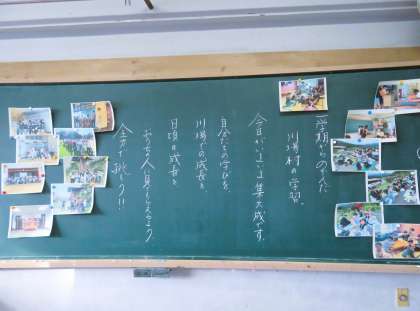 一学期からのまとめた
川場村の学習。
今日がいよいよ集大成です。
自分たちの学びを、
川場での成長を、
日頃の成長を、
おうちの人に見てもらえるよう
全力で挑もう!!